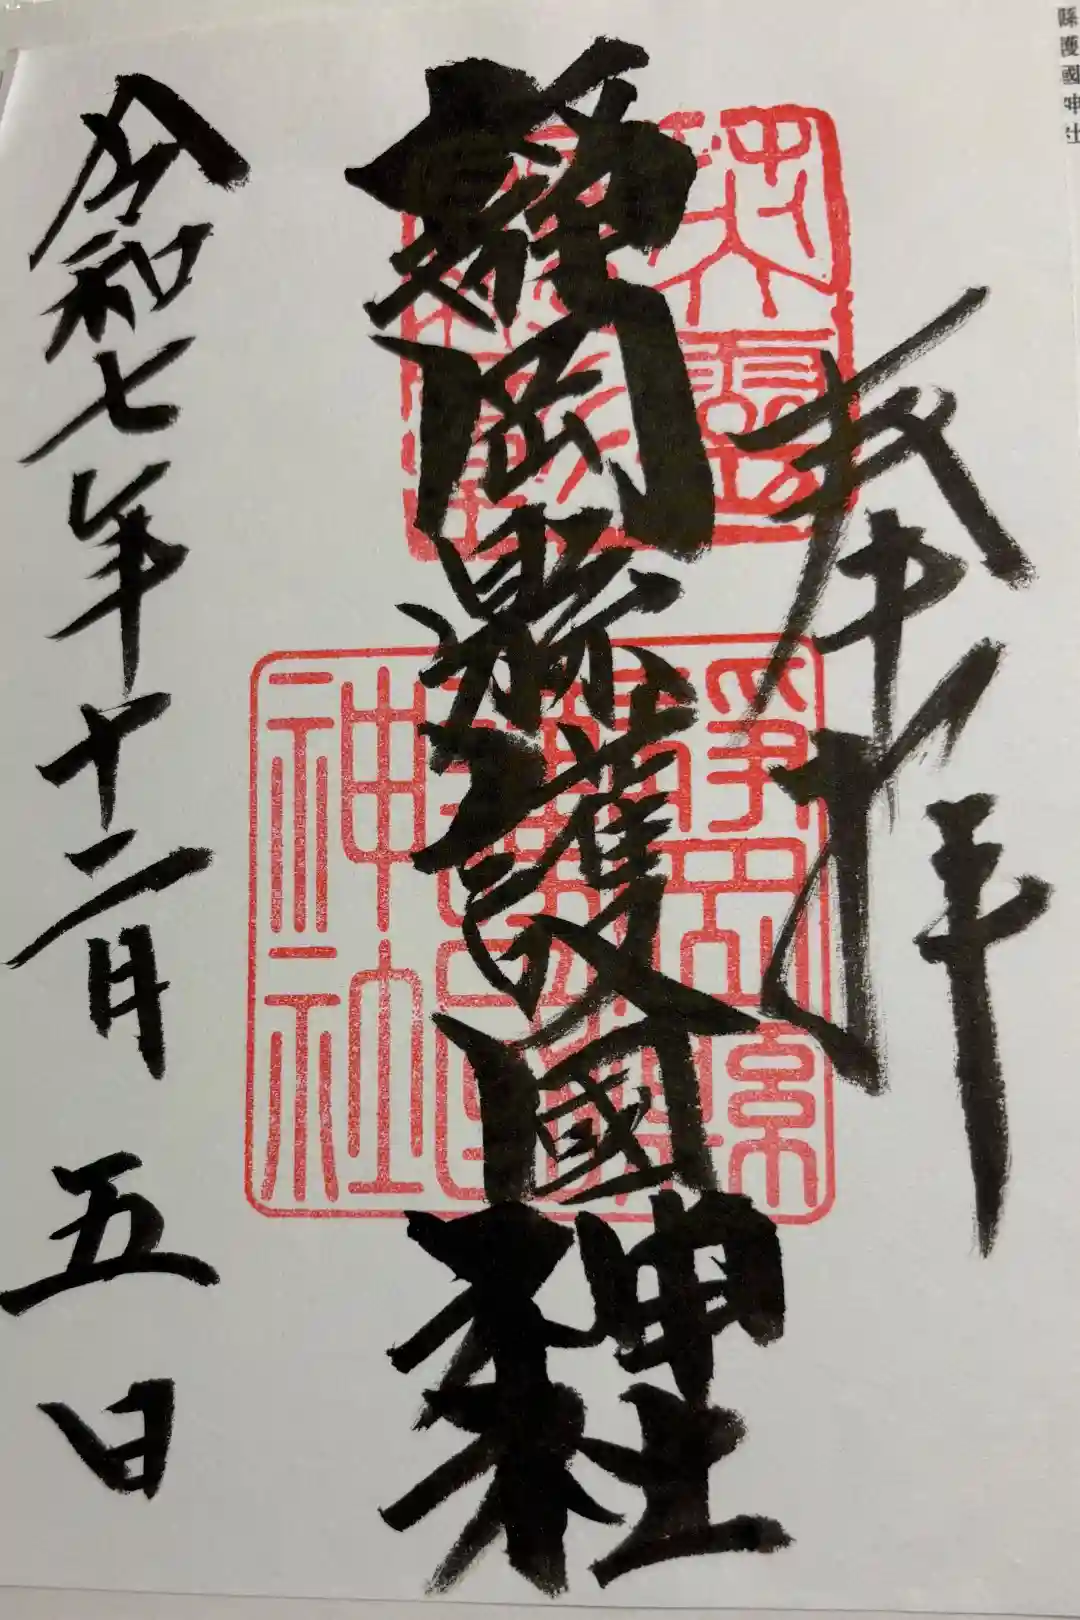 縣護國神社
奉拝
靜岡縣護國神社
靜岡縣
護國
神社
令和七年十二月五日